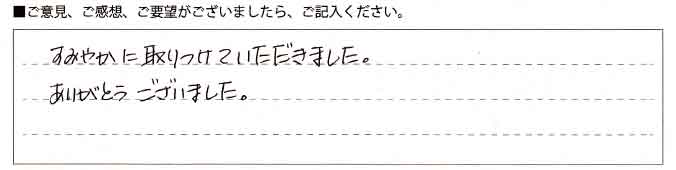 ■ご意見、ご感想、ご要望がございましたら、ご記入ください。
すみやかに取りつけていただきました。
ありがとうございました。